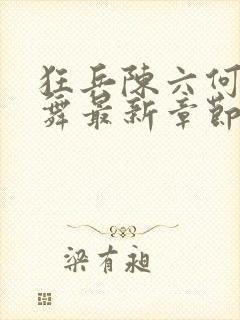 狂兵陳六何
舞最新章節
梁有昶